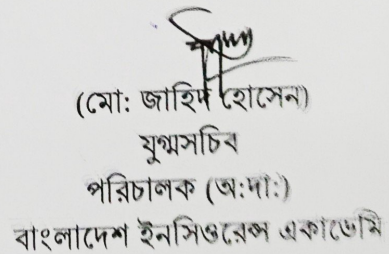 (মো: জাহিদ হোসেন)
যুগ্মসচিব
পরিচালক (অ:দা:)
বাংলাদেশ ইনসিওরেন্স একাডেমি